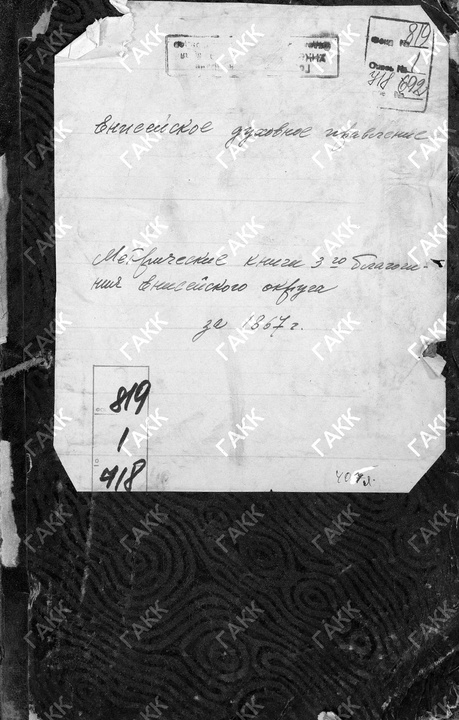 819
Фонд №
Опись №1
718 692
№
Енисейское духовное правление
Метрические книги 3го благочи-
ния Енисейского округа
за 1867 г.
819
1
718
407л.
ГАКК